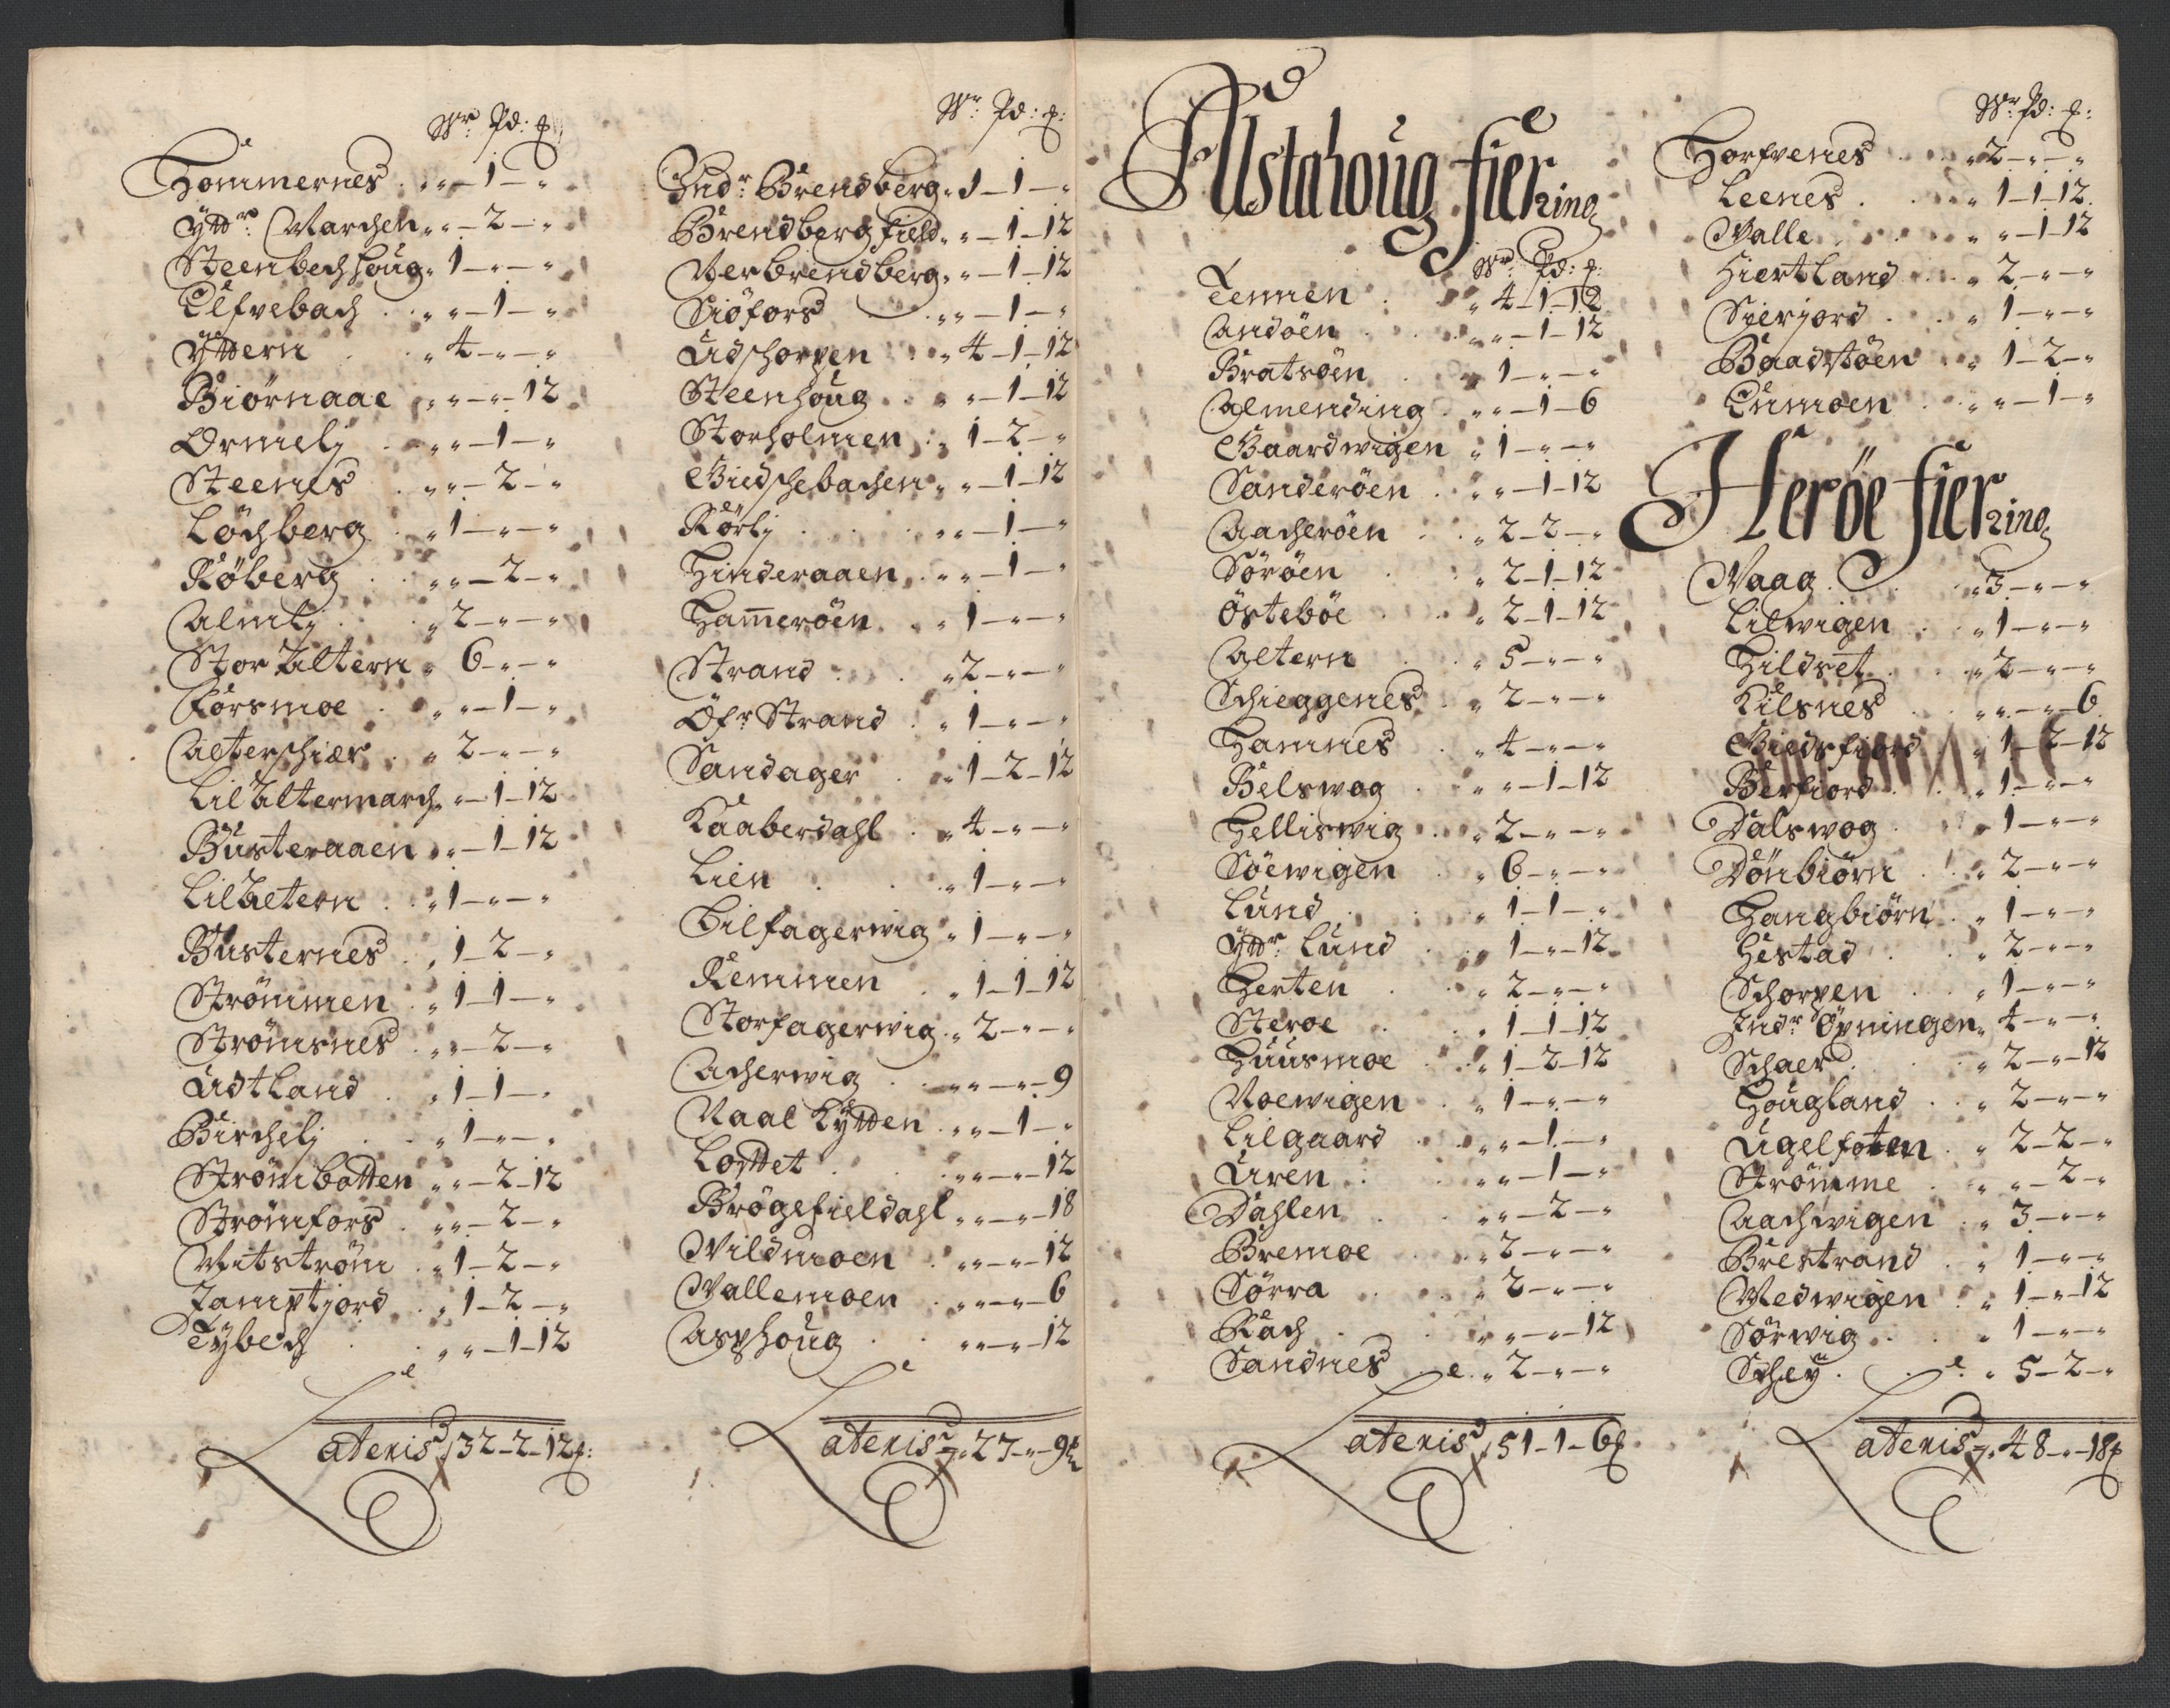 Wr Pd: £
Hommernes . „ „ – 1 – „
Yttr: Marchen „ „ – 2 – „
Steenbechhoug „ 1 – „ – „
Elfvebach . „ „ – 1 – „
Yttern „ 4 – „ – „
Biörnaae „ „ – „ – 12
Ormelj „ „ – 1 – „
Steenes „ „ – 2 – „
Löchberg „ 1 – „ – „
Röberg „ „ – 2 – „
Almlj „ 2 – „ – „
Stor Altern „ 6 – „ – „
Forsmoe „ „ – 1 – „
Alterschiær „ 2 – „ – „
Lil Altermarch „ „ – 1 – 12
Busteraaen „ „ – 1 – 12
Lil Altern „ 1 – „ – „
Busternes „ 1 – 2 – „
Strömmen „ 1 – 1 – „
Strömsnes „ „ – 2 – „
Udtland „ 1 – 1 – „
Birchelj „ 1 – „ – „
Strömbotten „ „ – 2 – 12
Strömfors „ „ – 2 – „
Mitström „ 1 – 2 – „
Jamptjord „ 1 – 2 – „
Tybech „ „ – 1 – 12
Lateris 32 – 2 – 12 £:
Wr: Pd: £:
Indr: Brendberg „ 1 – 1 – „
Brendbergfield „ „ – 1 – 12
Nerbrendberg „ „ – 1 – 12
Siöfors „ „ – 1 – „
Udschorpen „ 4 – 1 – 12
Steenhoug „ „ – 1 – 12
Storholmen „ 1 – 2 – „
Giedschebachen „ „ – 1 – 12
Rörlj „ „ – 1 – „
Hinderaaen „ „ – 1 – „
Ham̅eröen „ 1 – „ – „
Strand „ 2 – „ – „
Öfr Strand „ 1 – „ – „
Sandager „ 1 – 2 – 12
Kaaberdahl „ 4 – „ – „
Lien „ 1 – „ – „
Lilfagerwig „ 1 – „ – „
Remmen „ 1 – 1 – 12
Storfagerwig „ 2 – „ – „
Acherwig „ „ – „ – 9
Naal Kytten „ „ – 1 – „
Lofftet „ „ – „ – 12
Brögefieldahl „ „ – „ – 18
Wildmoen „ „ – „ – 12
Wallemoen „ „ – „ – 6
Asphoug „ „ – „ – 12
Lateris „ 27 – „ – 9 £
Alstahoug fiering
Wr: Pd: £:
Tennen „ 4 – 1 – 12
Andöen „ „ – 1 – 12
Bratsöen „ 1 – „ – „
Almending „ „ – 1 – 6
Gaardwigen „ 1 – „ – „
Sanderöen „ „ – 1 – 12
Aacheröen „ 2 – 2 – „
Söröen „ 2 – 1 – 12
Östeböe „ 2 – 1 – 12
Altern „ 5 – „ – „
Schieggenes „ 2 – „ – „
Hamnes „ 4 – „ – „
Belswog „ „ – 1 – 12
Helliswig „ 2 – „ – „
Söewigen „ 6 – „ – „
Lund „ 1 – 1 – „
Yttr: Lund „ 1 – „ – 12
Herten „ 2 – „ – „
Steroe „ 1 – 1 – 12
Huusmoe „ 1 – 2 – 12
Noewigen „ 1 – „ – „
Lilgaard „ „ – 1 – „
Uren „ „ – 1 – „
Dahlen „ „ – 2 – „
Bremoe „ 2 – „ – „
Sörra „ 2 – „ – „
Rach „ „ – „ – 12
Sandnes „ 2 – „ – „
Lateris 51 – 1 – 6 £
Wr: Pd: £:
Horfvenes „ 2 – „ – „
Leenes „ 1 – 1 – 12
Walle „ „ – 1 – 12
Hiertland „ 2 – „ – „
Sierjord „ 1 – „ – „
Baadstöen „ 1 – 2 – „
Einmoen „ „ – 1 – „
Heröe fiering
Waag „ 3 – „ – „
Lilwigen „ 1 – „ – „
Hildset „ 2 – „ – „
Kilsnes „ „ – „ – 6
Giedsfiord „ 1 – 2 – 12
Berfiord „ 1 – „ – „
Dalswog „ 1 – „ – „
Dönbiörn „ 2 – „ – „
Hangbiörn „ 1 – „ – „
Hestad „ 2 – „ – „
Schorpen „ 1 – „ – „
Indr Öpningen „ 4 – „ – „
Schaer „ 2 – „ – 12
Hougland „ 2 – „ – „
Ugelfoten „ 2 – 2 – „
Strömme „ „ – 2 – „
Aachwigen „ 3 – „ – „
Brestrand „ 1 – „ – „
Nedwigen „ 1 – „ – 12
Sörwig „ 1 – „ – „
Schey „ 5 – 2 – „
Lateris „ 48 – „ – 18 £